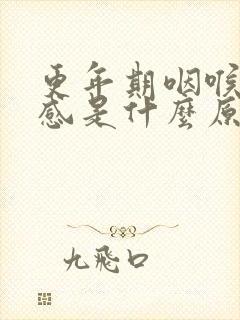 更年期咽喉
感是什麼原
九飛口